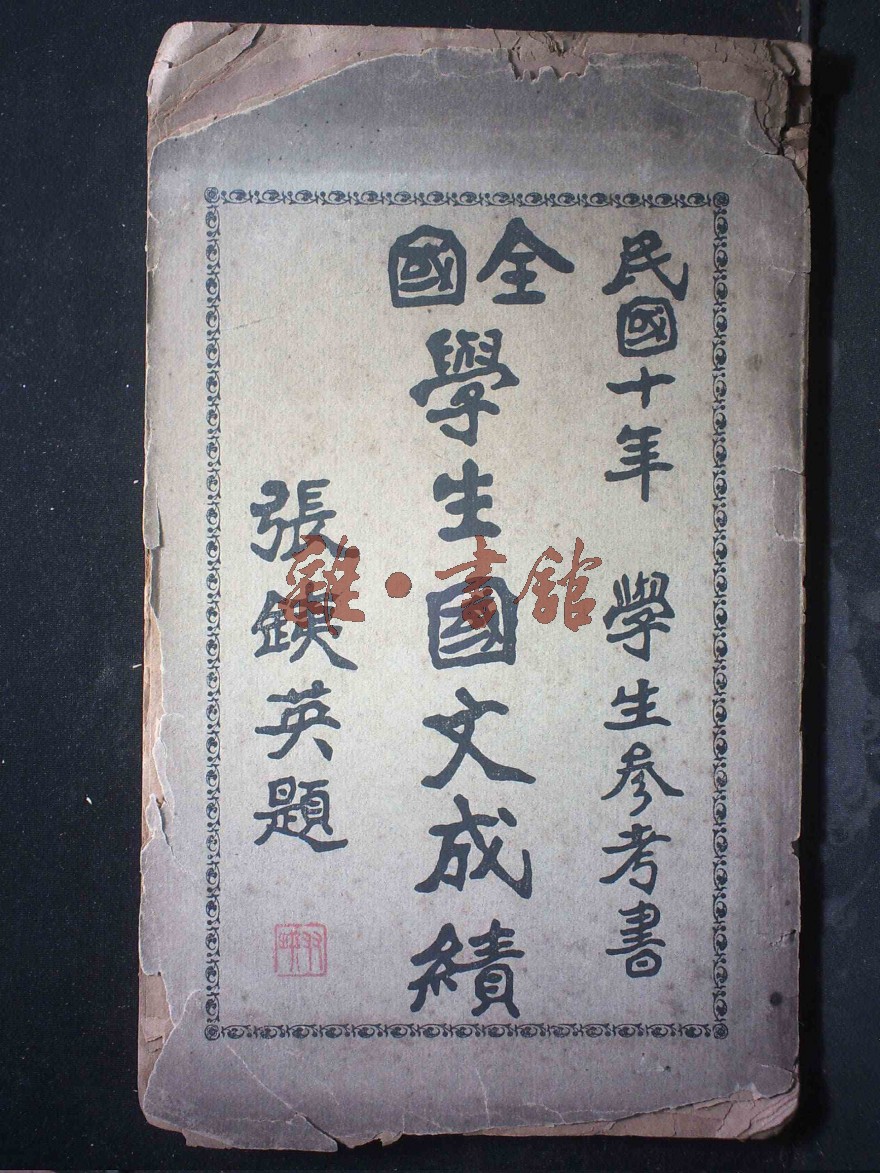 民國十年 學生参考書
全國
學生國文成績
張銕英題
雜·書舘